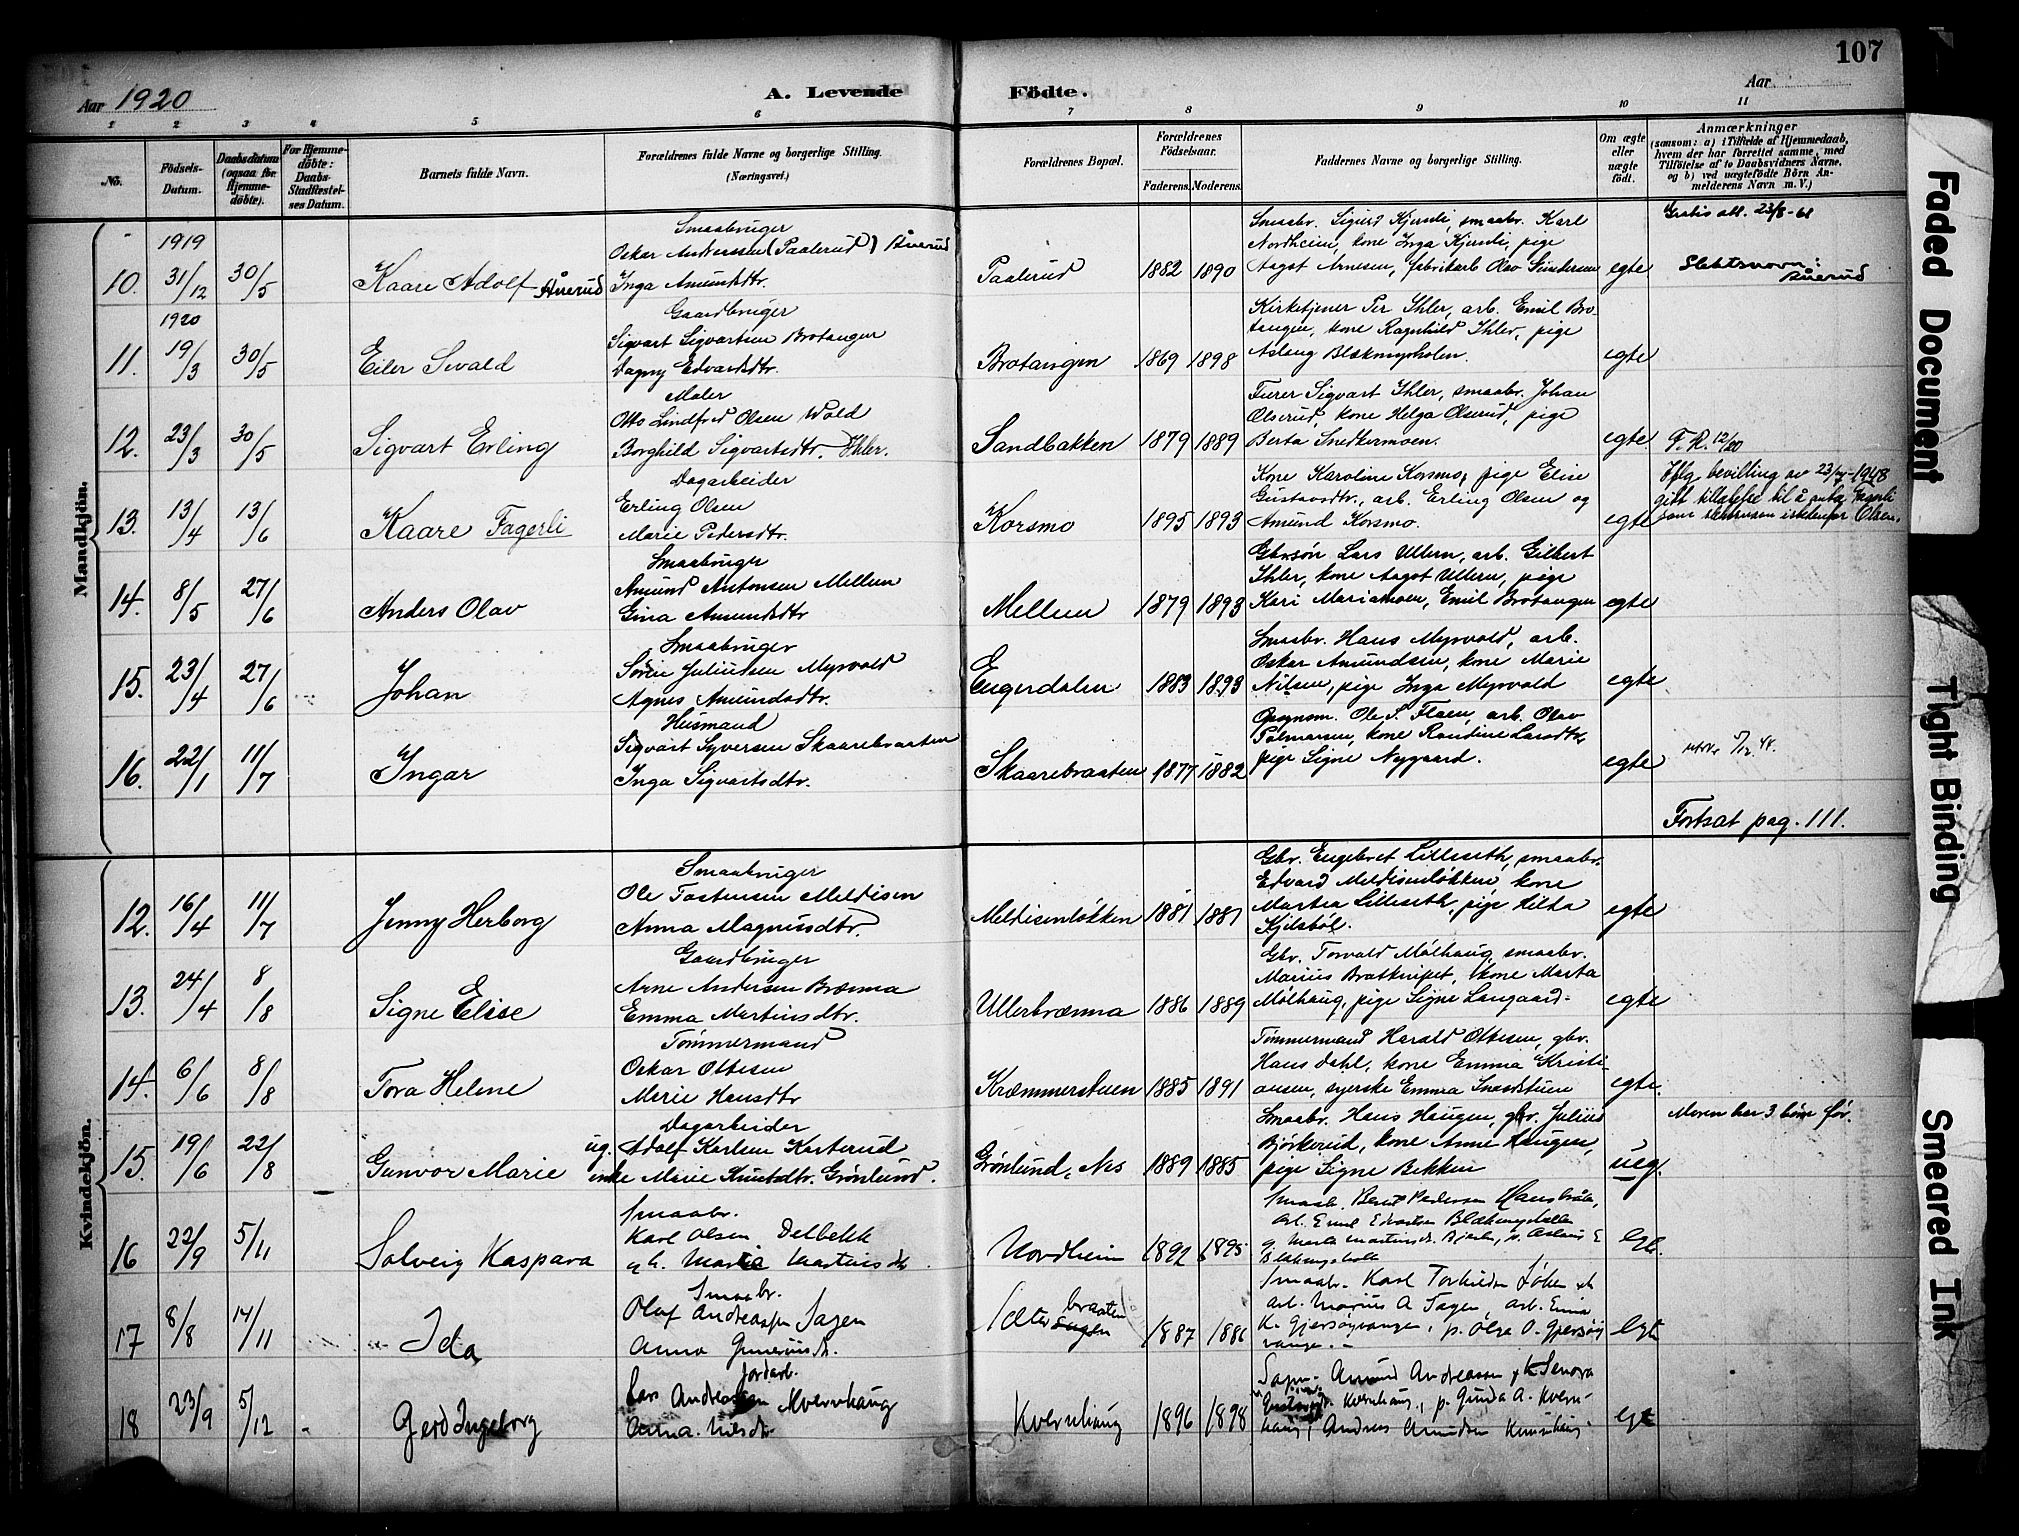 107
Aar 1920
A. Levende Födte.
Aar
1 2 3 4 5 6 7 8 9 10 11
No.
Födsels-Datum.
Daabsdatum (ogsaa for Hjemme-döbte).
For Hjemme-döbte: Daabs-Stadfæstel-ses Datum.
Barnets fulde Navn.
Forældrenes fulde Navne og borgerlige Stilling.
(Næringsvei.)
Forældrenes Bopæl.
Forældrenes Födselsaar.
Faderens. Moderens.
Faddernes Navne og borgerlige Stilling.
Om ægte eller uægte födt.
Anmærkninger
(saasom: a) i Tilfælde af Hjemmedaab, hvem der har forrettet samme, med Tilföielse af to Daabsvidners Navne, og b) ved uægtefödte Börn An-melderens Navn m. V.)
Mandkjön.
1919
10. 31/12 30/5 Kaare Adolf Åuerud
Smaabruger
Oskar Anderssen (Paalerud) Åuerud
Inga Amundsdtr.
Paalerud 1882 1890
Smaabr. Sigurd Kjernli, smaabr. Karl
Nordheim, kone Inga Kjernli, pige
Aagot Arnesen, fabrikarb. Olav Gundersen
egte
Gratis att. 23/8-61
Slektsnavn: Åuerud
1920
11. 19/3 30/5 Eiler Sivald
Gaardbruger
Sigvart Sigvartsen Brotangen
Dagny Edvardsdtr.
Brotangen 1869 1898
Kirketjener Per Ihler, arb. Emil Bro-
tangen, kone Ragnhild Ihler, pige
Aslaug Blækmyrholen.
egte
12. 23/3 30/5 Sigvart Erling
Maler
Otto Lindfred Olsen Wold
Borghild Sigvartsdtr. Ihler.
Sandbakken 1879 1889
Furer Sigvart Ihler, smaabr. Johan
Olserud, kone Helga Olserud, pige
Berta Snedkermoen.
egte. F.R. 12/20
13. 13/4 13/6 Kaare Fagerli
Dagarbeider
Erling Olsen
Marie Pedersdtr.
Korsmo 1895 1893
Kone Karoline Korsmo, pige Elise
Gustavsdtr., arb. Erling Olsen og
Amund Korsmo.
egte
Iflg. bevilling av 23/ -1948
gitt tillatelse til å anta Fagerli
som slektsnavn istedenfor Olsen.
14. 8/5 27/6 Anders Olav
Smaabruger
Amund Antonsen Mellem
Gina Amundsdtr
Mellem 1879 1893
Gbrsøn Lars Ullern, arb. Gilbert
Ihler, kone Aagot Ullern, pige
Kari Mariamoen, Emil Brotangen
egte
15. 23/4 27/6 Johan
Smaabruger
Søren Juliussen Myrvold
Agnes Amundsdtr.
Engerdalen 1883 1893
Smaabr. Hans Myrvold, arb.
Oskar Amundsen, kone Marie
Nilsen, pige Inga Myrvold
egte
16. 22/1 11/7 Ingar
Husmand
Sigvart Syversen Skaarebraaten
Inga Sigvartsdtr.
Skaarebraaten 1877 1882
Opsynsm. Ole S. Floen, arb. Olav
Palmersen, kone Randine Larsdtr,
pige Signe Nygaard.
egte
Fortsat pag. 111.
Kvindekjön.
12. 16/4 11/7 Jenny Herborg
Smaabruger
Ole Tostensen Meldisen
Anna Magnusdtr.
Meldisenløkken 1881 1881
Gbr. Engebret Lilleseth, smaabr.
Edvard Meldisenløkken, kone
Martea Lilleseth, pige Hilda
Kjilsböl.
egte
13. 24/4 8/8 Signe Elise
Gaardbruger
Arne Andersen Brænna
Emma Martinsdtr.
Ullerbrænna 1886 1889
Gbr. Torvald Mølhaug, smaabr.
Marius Bratknipet, kone Marta
Mølhaug, pige Signe Langaard.
egte
14. 6/6 8/8 Tora Helene
Tømmermand
Oskar Ottesen
Marie Hansdtr
Kræmmerstuen 1885 1891
Tømmermand Harald Ottesen, gbr.
Hans Dahl, kone Emma Kristi-
ansen, syerske Emma Smedstuen
egte.
15. 19/6 22/8 Gunvor Marie
Dagarbeider
ug. Adolf Karlsen Kasterud
enke Marie Knutsdtr. Grønlund.
Grønlund, Nes 1889 1885
Smaabr. Hans Haugen, gbr. Julius
Bjørkerud, kone Anne Haugen,
pige Signe Bekken
ueg.
Moren har 3 børn før.
16 22/9 5/11 Solveig Kaspara
Smaabr.
Karl Olsen Delbekk
g h. Marie Martinsdtr.
Nordheim 1892 1895
Smaab. Bernt Pedersen
Arb. Emil Edvartsen
g. Marta Martinsdt.
egte.
17 8/8 14/11 Ida
Smaabr.
Olaf Andreassen Sagen
Anna Guneriusdt.
Sæterbraaten Sagen 1887 1886
Smaabr. Karl Torkildsen
Arb. Marius A Sagen, arb.
K. Gjersøyvangen, p. Olga O. Gjersøy
vangen.
egte
18 23/9 5/12 Gerd Ingeborg
Jordarb.
Lars Andreassen Kvernhaug
Anna Nilsdtr.
Kvernhaug 1896 1898
Amund Andreassen
Kvernhaug, p. Gunda A. Kvern-
haug, Andreas Amundsen Kvernhaug
egte
Faded Document
Tight Binding
Smeared Ink